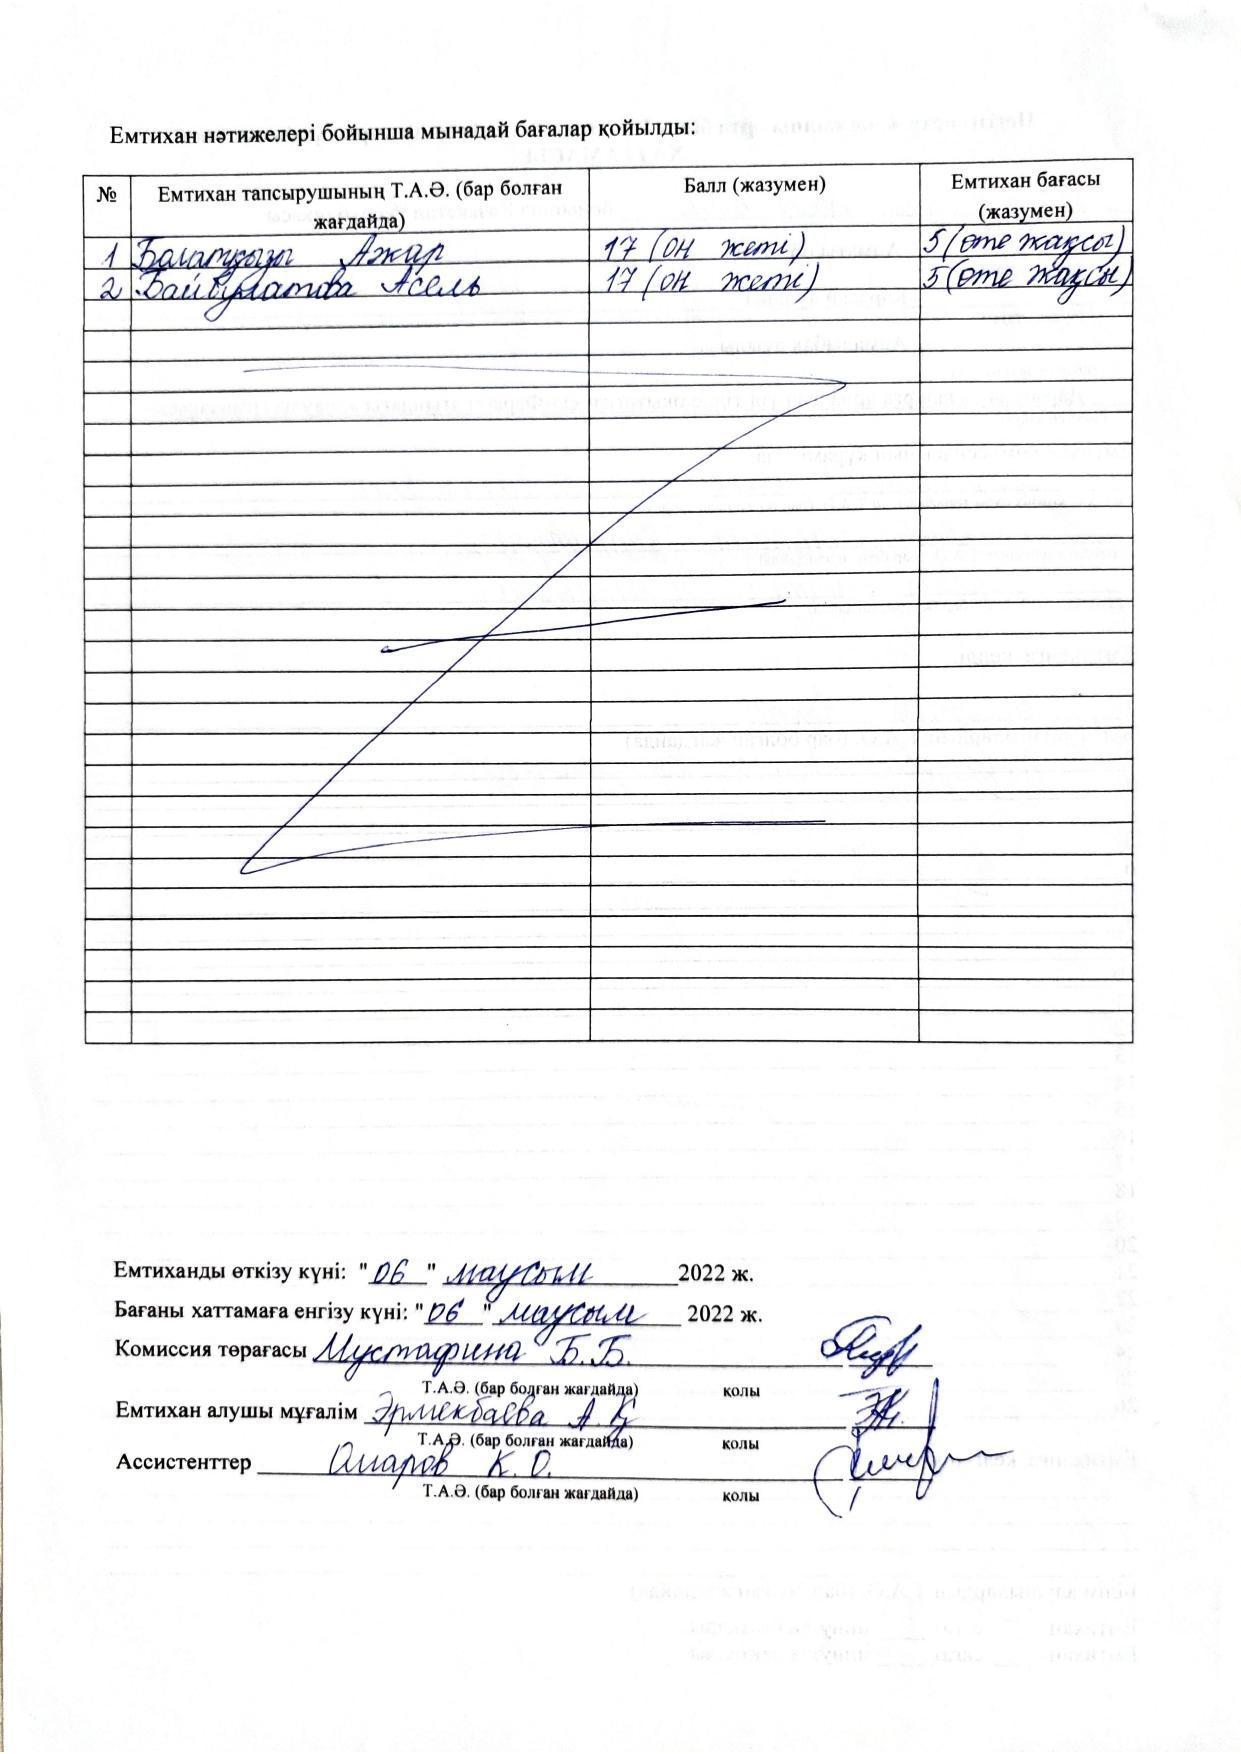 Емтихан нәтижелері бойынша мынадай бағалар қойылды:
№ Емтихан тапсырушының Т.А.Ә. (бар болған жағдайда) Балл (жазумен) Емтихан бағасы (жазумен)
1 Болатқызы Ажар 17 (он жеті) 5 (өте жақсы)
2 Байбулатова Асель 17 (он жеті) 5 (өте жақсы)
Емтиханды өткізу күні: "06" маусым 2022 ж.
Бағаны хаттамаға енгізу күні: "06" маусым 2022 ж.
Комиссия төрағасы Мустафина Б.Б.
Т.А.Ә. (бар болған жағдайда) қолы
Емтихан алушы мұғалім Әрмекбаева А.Қ
Т.А.Ә. (бар болған жағдайда) қолы
Ассистенттер Омаров К.О.
Т.А.Ә. (бар болған жағдайда) қолы